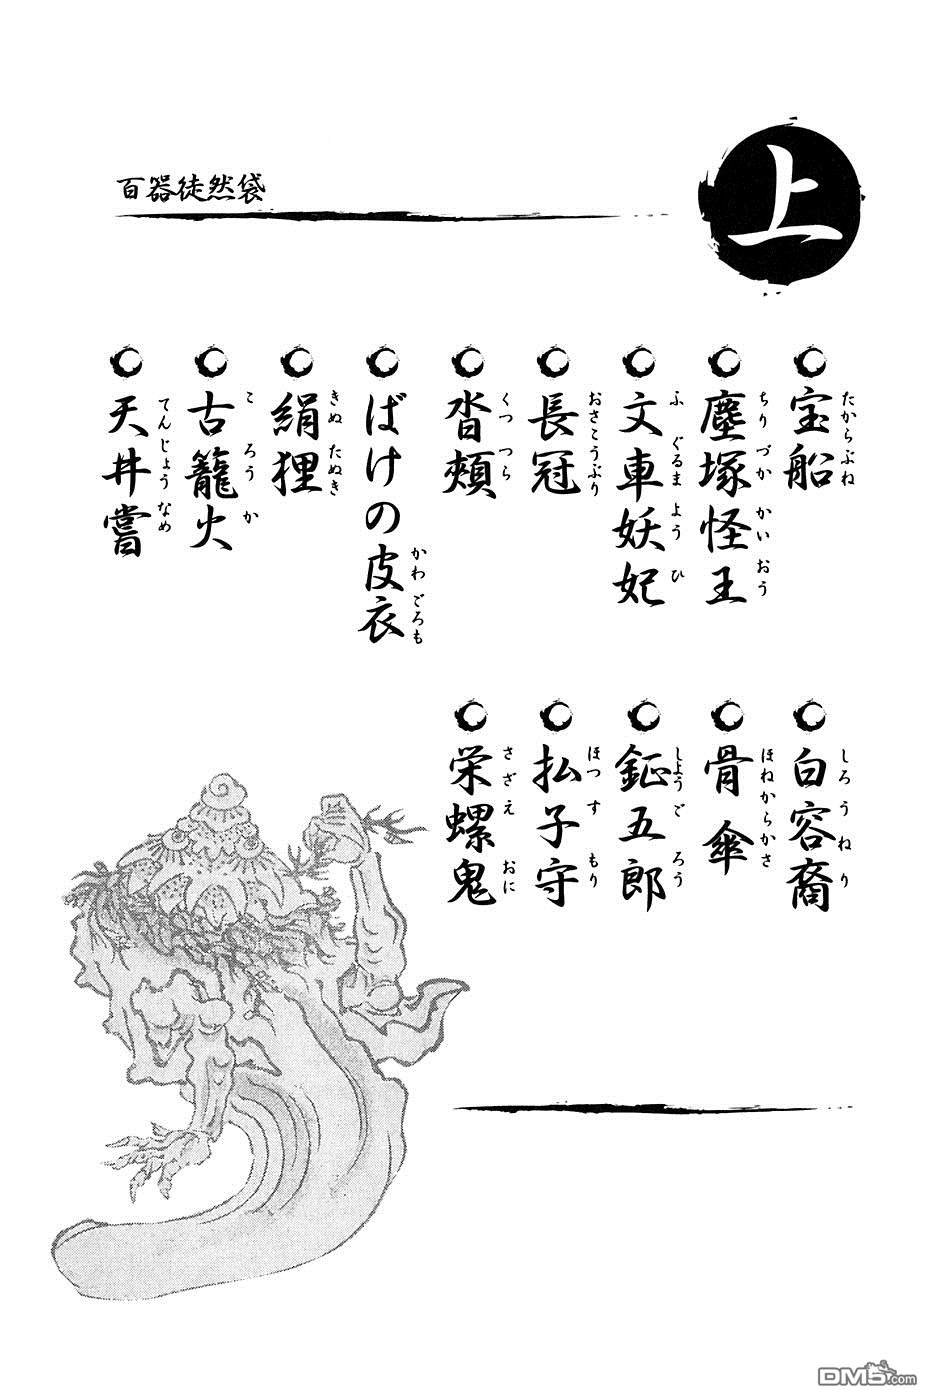 百器徒然袋
上
宝船
たからぶね
塵塚怪王
ちりづかかいおう
文車妖妃
ふぐるまようひ
長冠
おさこうぶり
沓頬
くつつら
ばけの皮衣
かわごろも
絹狸
きぬたぬき
古籠火
ころうか
天井嘗
てんじょうなめ
白容裔
しろうねり
骨傘
ほねからかさ
鉦五郎
しようごろう
払子守
ほつすもり
栄螺鬼
さざえおに
DM5.com